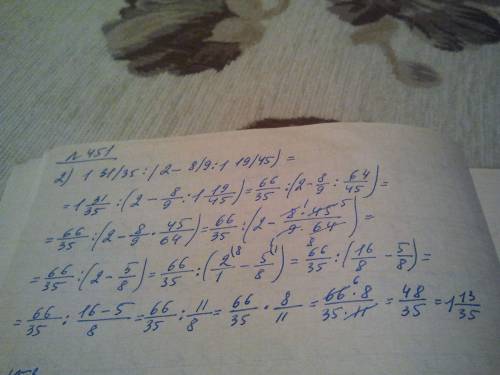 № 451
2) 1 31/35 : (2 - 8/9 : 1 19/45) =
= 1 31/35 : (2 - 8/9 : 1 19/45) = 66/35 : (2 - 8/9 : 64/45) =
= 66/35 : (2 - 8/9 · 45/64) = 66/35 : (2 - 8 · 45/9 · 64) =
= 66/35 : (2 - 5/8) = 66/35 : (2/1 - 5/8) = 66/35 : (16/8 - 5/8) =
= 66/35 : 16-5/8 = 66/35 : 11/8 = 66/35 · 8/11 = 66 · 8/35 · 11 = 48/35 = 1 13/35